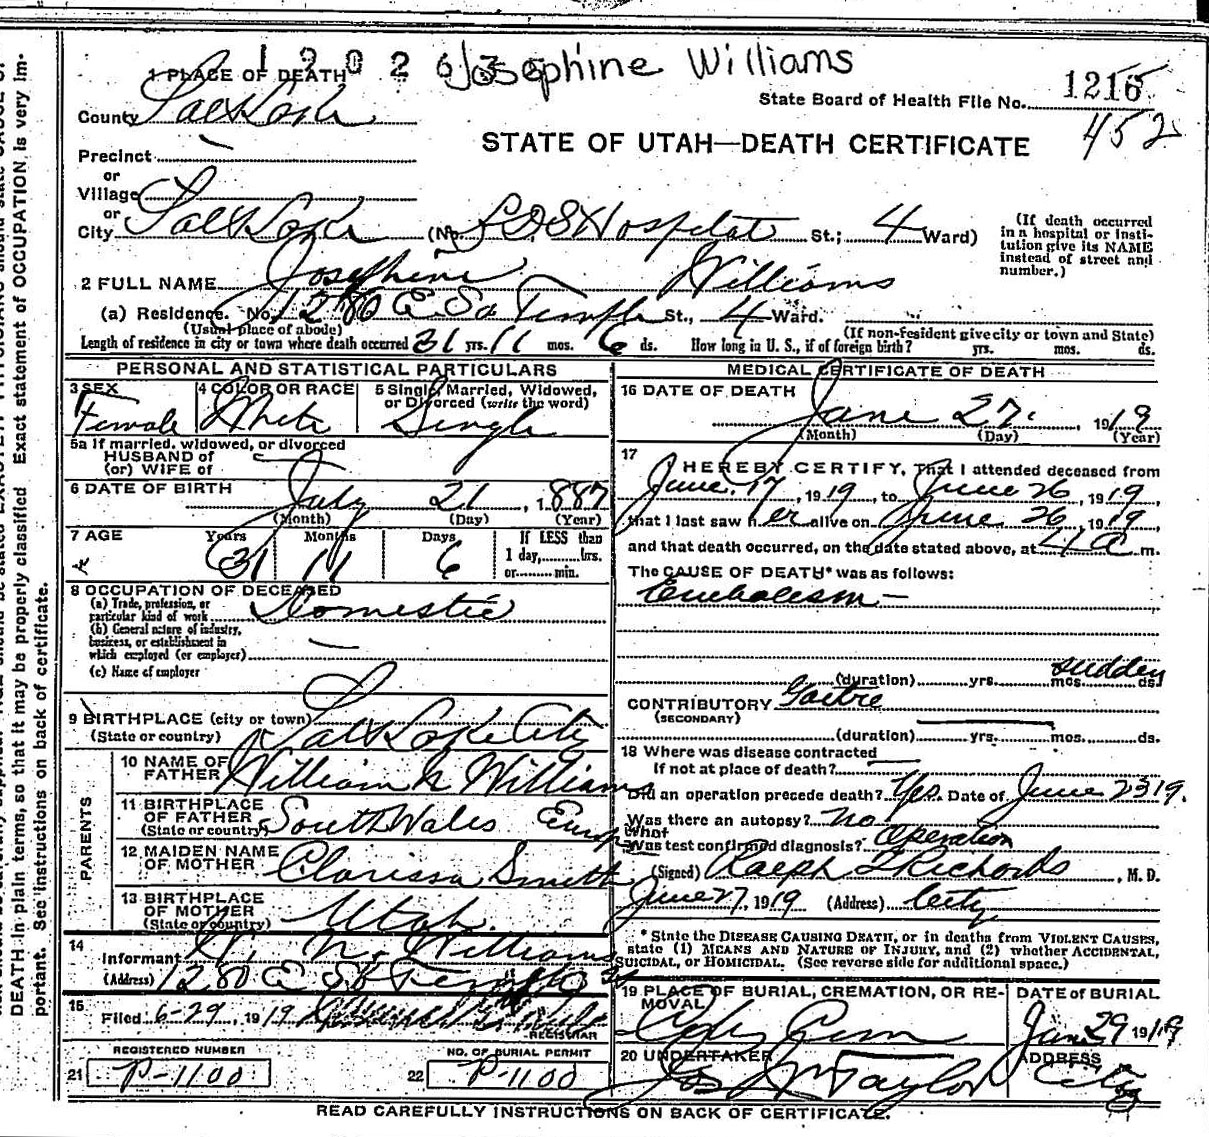 Josephine Williams
1 PLACE OF DEATH
State Board of Health File No. 1215
452
County Salt Lake
STATE OF UTAH—DEATH CERTIFICATE
Precinct
or
Village
or
City Salt Lake (No. LDS Hospital St.; 4 Ward)
(If death occurred in a hospital or institution give its NAME instead of street and number.)
2 FULL NAME Josephine Williams
(a) Residence. No. 1280 E So Temple St., 4 Ward.
(Usual place of abode) (If non-resident give city or town and State)
Length of residence in city or town where death occurred 31 yrs. 11 mos. 6 ds. How long in U. S., if of foreign birth? yrs. mos. ds.
PERSONAL AND STATISTICAL PARTICULARS
3 SEX Female
4 COLOR OR RACE White
5 Single, Married, Widowed, or Divorced (write the word) Single
5a If married, widowed, or divorced
HUSBAND of
(or) WIFE of
6 DATE OF BIRTH July 21, 1887
(Month) (Day) (Year)
7 AGE Years Months Days If LESS than
31 11 6 1 day, hrs.
or min.
8 OCCUPATION OF DECEASED
(a) Trade, profession, or
particular kind of work Domestic
(b) General nature of industry,
business, or establishment in
which employed (or employer)
(c) Name of employer
9 BIRTHPLACE (city or town) Salt Lake City
(State or country)
PARENTS
10 NAME OF FATHER William N Williams
11 BIRTHPLACE OF FATHER South Wales Europe
(State or country)
12 MAIDEN NAME OF MOTHER Clarissa Smith
13 BIRTHPLACE OF MOTHER Utah
(State or country)
14
Informant W. N. Williams
(Address) 1280 E So Temple St
15
Filed 6-29, 1919
REGISTRAR
REGISTERED NUMBER
21 P-1100
NO. OF BURIAL PERMIT
22 P-1100
MEDICAL CERTIFICATE OF DEATH
16 DATE OF DEATH
June 27, 1919
(Month) (Day) (Year)
17
I HEREBY CERTIFY, That I attended deceased from
June 17, 1919, to June 26, 1919,
that I last saw her alive on June 26, 1919,
and that death occurred, on the date stated above, at 4 A m.
The CAUSE OF DEATH* was as follows:
Embolism
(duration) yrs. mos. ds. sudden
CONTRIBUTORY Goitre
(SECONDARY)
(duration) yrs. mos. ds.
18 Where was disease contracted
If not at place of death?
Did an operation precede death? Yes Date of June 23 19.
Was there an autopsy? No
What
Was test confirmed diagnosis? Operation
(Signed) Ralph T Richards, M. D.
June 27, 1919 (Address) City
* State the DISEASE CAUSING DEATH, or in deaths from VIOLENT CAUSES,
state (1) MEANS AND NATURE OF INJURY, and (2) whether ACCIDENTAL,
SUICIDAL, or HOMICIDAL. (See reverse side for additional space.)
19 PLACE OF BURIAL, CREMATION, OR REMOVAL City Cem
DATE of BURIAL June 29 1919
20 UNDERTAKER Jos Wm Taylor
ADDRESS City
READ CAREFULLY INSTRUCTIONS ON BACK OF CERTIFICATE.
DEATH in plain terms, so that it may be properly classified. Exact statement of OCCUPATION is very im-
portant. See instructions on back of certificate.